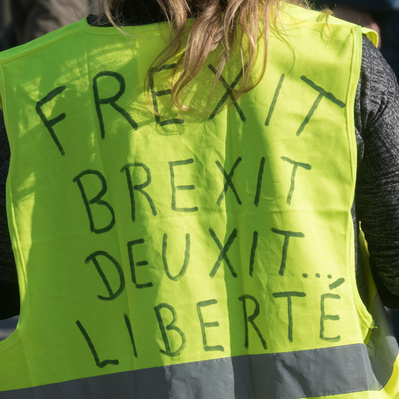 FREXIT
BREXIT
DEUXIT...
LIBERTÉ